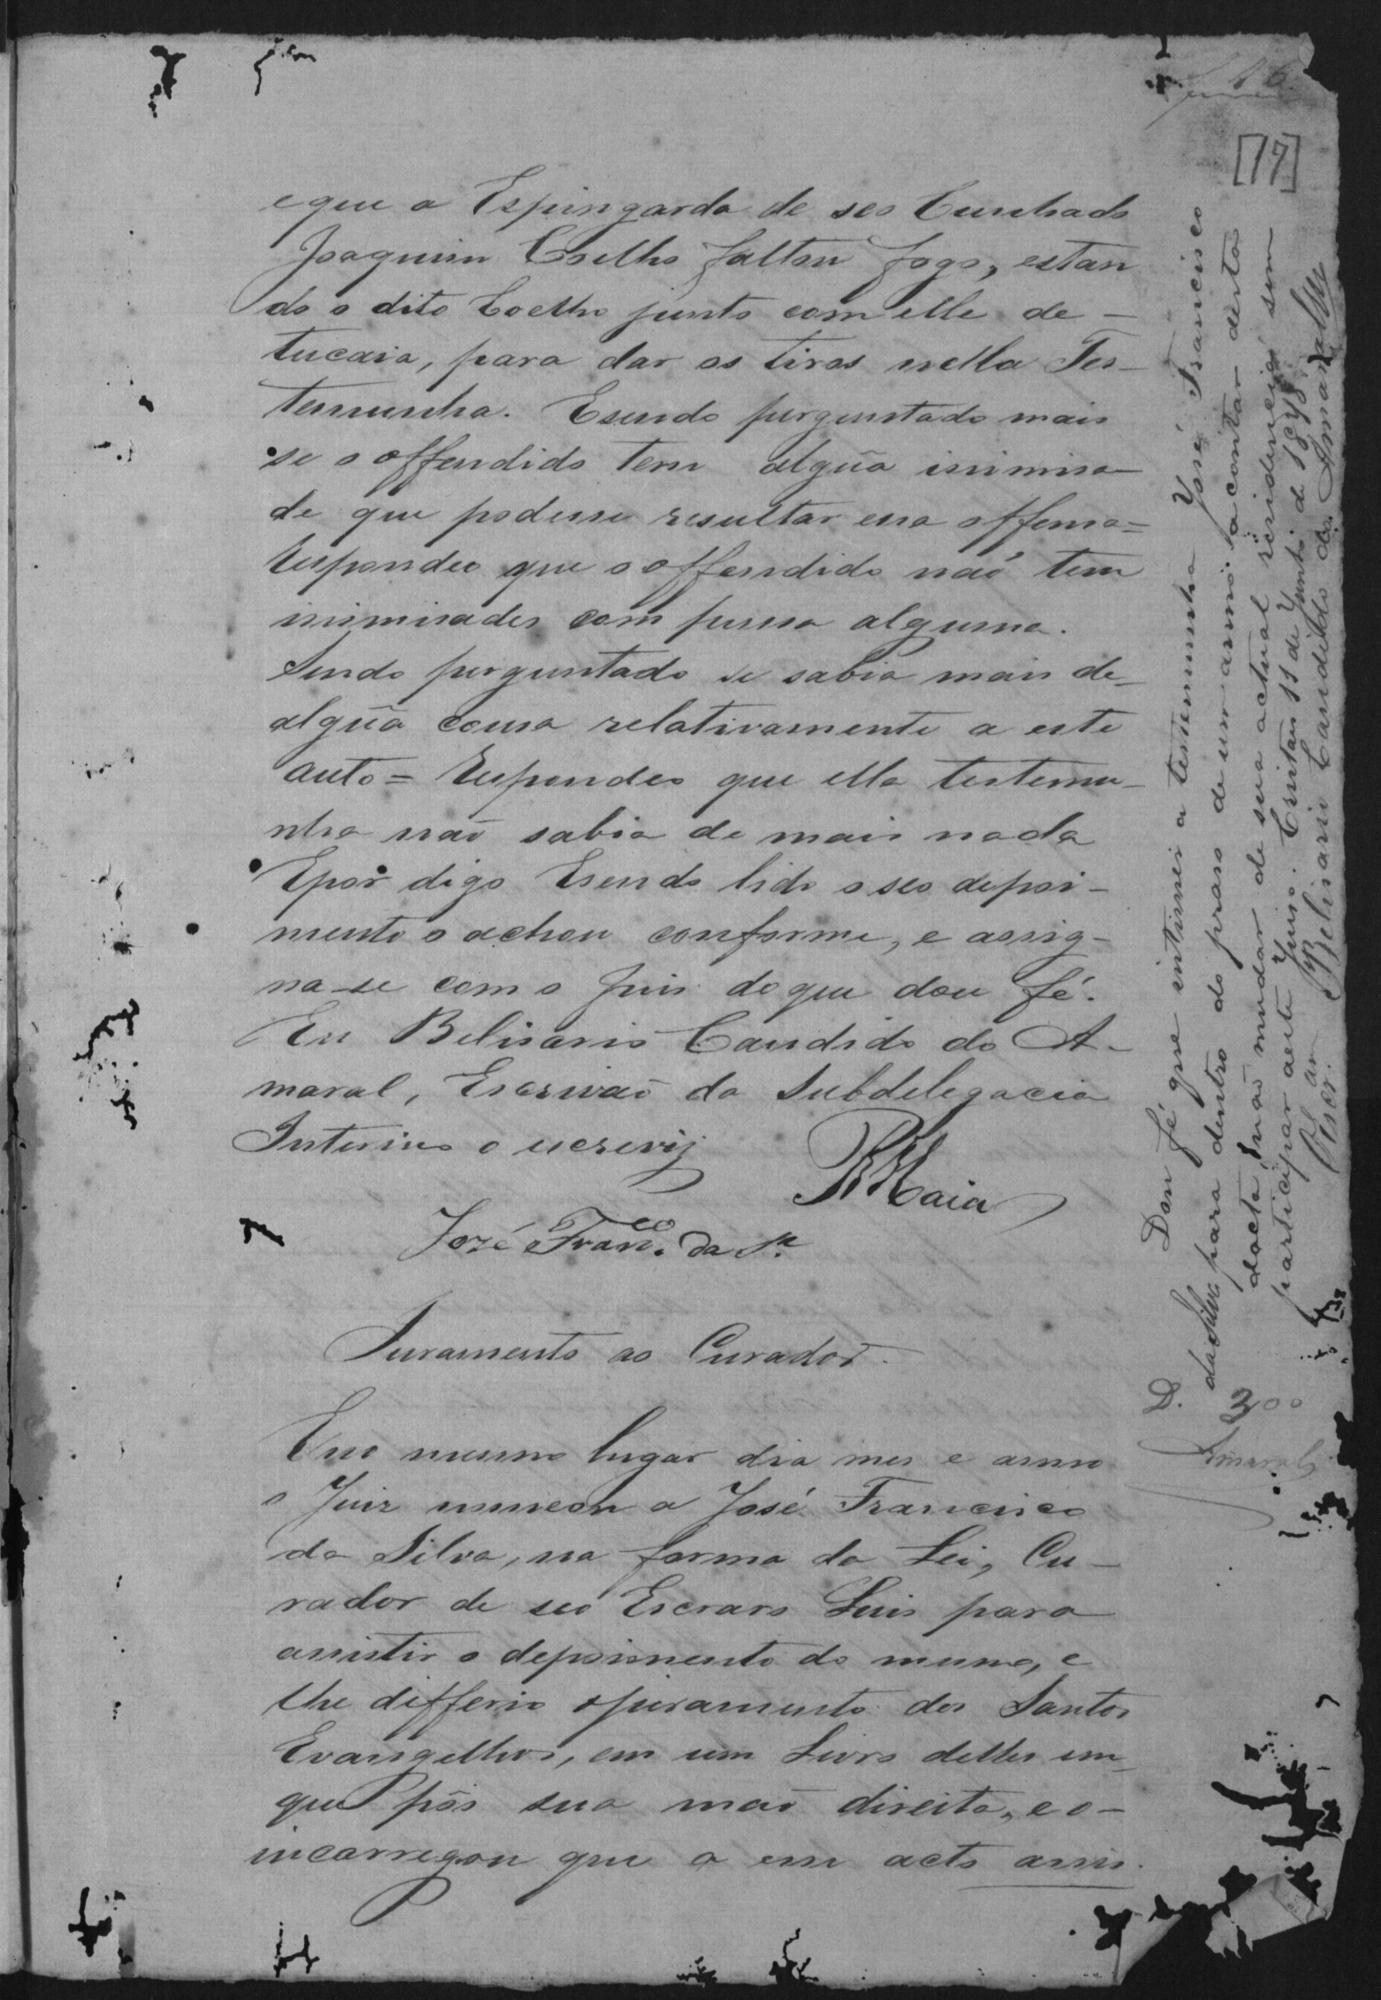 16
[17]
e que a Espingarda de seo Cunhado
Joaquim Coelho faltou fogo, estan
do o dito Coelho junto com elle de -
tucaia, para dar os tiros nella Tes-
temunha. Esendo perguntado mais
se o offendido tem algũa inimisa-
de que podesse resultar essa offensa=
Respondeo que o offendido naõ tem
inimisades com pessoa alguma.
Sendo perguntado se sabia mais de-
algũa cousa relativamente a este
auto= Respondeo que ella testemu-
nha naõ sabia de mais nada
Epor digo Esendo lido o seo depoi-
mento o achou conforme, e assig-
na-se com o Juis do que dou fé.
Eu Belisario Candido do A-
maral, Escrivaõ da Subdelegacia
Interino o escrevij
RMaia
José Fran.co da S.a
Juramento ao Curador.
Eno mesmo lugar dia mes e anno
o Juiz nomeou a José Francisco
da Silva, na forma da Lei, Cu-
rador de seo Escravo Luis para
assistir o depoimento do mesmo, e
lhe differio ojuramento dos Santos
Evangelhos, em um Livro delles em
que pôs sua maõ direita, e o-
incarregou que a esse acto assis.
Dou fé que intimei a testemunha José Francisco
da Silva para dentro do praso de um anno, a contar desta
dacta, naõ mudar de sua actual residencia sem
participar a este Juiso. Era ut supra 11 de Junho de 1878.
O Escr.am Belisario Candido do Amaral
D. 300
Amaral